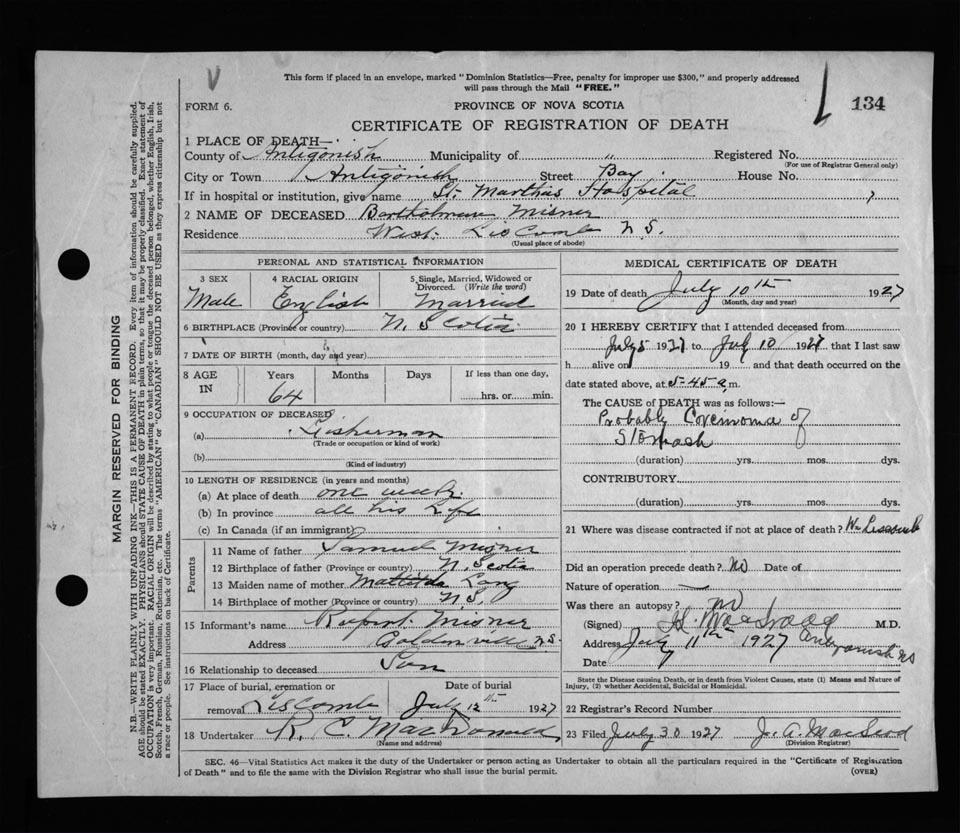 This form if placed in an envelope, marked "Dominion Statistics—Free, penalty for improper use $300," and properly addressed
will pass through the Mail "FREE."
FORM 6.
PROVINCE OF NOVA SCOTIA
134
CERTIFICATE OF REGISTRATION OF DEATH
1 PLACE OF DEATH—
County of Antigonish Municipality of " Registered No.
(For use of Registrar General only)
City or Town Antigonish Street Bay House No.
If in hospital or institution, give name St. Marthas Hospital
2 NAME OF DECEASED Bartholmew Misner
Residence West Liscomb N S.
(Usual place of abode)
PERSONAL AND STATISTICAL INFORMATION
3 SEX 4 RACIAL ORIGIN 5 Single, Married, Widowed or
Divorced. (Write the word)
Male English Married
6 BIRTHPLACE (Province or country) N. Scotia
7 DATE OF BIRTH (month, day and year)
8 AGE Years Months Days If less than one day,
IN 64 hrs. or min.
9 OCCUPATION OF DECEASED
(a) Fisherman
(Trade or occupation or kind of work)
(b)
(Kind of industry)
10 LENGTH OF RESIDENCE (in years and months)
(a) At place of death one week
(b) In province all his Life
(c) In Canada (if an immigrant)
Parents
11 Name of father Samuel Misner
12 Birthplace of father (Province or country) N. Scotia
13 Maiden name of mother Mattilda Lang
14 Birthplace of mother (Province or country) N S.
15 Informant's name Rupert Misner
Address Goldenville N S.
16 Relationship to deceased Son
17 Place of burial, cremation or Date of burial
removal Liscomb July 12th 1927
18 Undertaker R. C. MacDonald
(Name and address)
MEDICAL CERTIFICATE OF DEATH
19 Date of death July 10th 1927
(Month, day and year)
20 I HEREBY CERTIFY that I attended deceased from
July 5 1927 to July 10 1927 that I last saw
h alive on 19 and that death occurred on the
date stated above, at 5-45 a. m.
The CAUSE OF DEATH was as follows:—
Probably Corcinoma of
Stomach
(duration) yrs. mos. dys.
CONTRIBUTORY
(duration) yrs. mos. dys.
21 Where was disease contracted if not at place of death? W. Liscomb
Did an operation precede death? No Date of
Nature of operation —
Was there an autopsy? no
(Signed) M.D.
Address Antigonish NS
Date July 11th 1927
State the Disease causing Death, or in death from Violent Causes, state (1) Means and Nature of
Injury, (2) whether Accidental, Suicidal or Homicidal.
22 Registrar's Record Number
23 Filed July 30 1927 J. A. MacLeod
(Division Registrar)
SEC. 46—Vital Statistics Act makes it the duty of the Undertaker or person acting as Undertaker to obtain all the particulars required in the "Certificate of Registration
of Death" and to file the same with the Division Registrar who shall issue the burial permit.
(OVER)
MARGIN RESERVED FOR BINDING
N.B.—WRITE PLAINLY WITH UNFADING INK—THIS IS A PERMANENT RECORD. Every item of information should be carefully supplied.
AGE should be stated EXACTLY. PHYSICIANS should STATE CAUSE OF DEATH in plain terms, so that it may be properly classified. Exact statement of
OCCUPATION is very important. RACIAL ORIGIN will be described by stating to what people or tongue the deceased person belonged, whether English, Irish,
Scotch, French, German, Russian, Ruthenian, etc. The terms "AMERICAN" or "CANADIAN" SHOULD NOT BE USED as they express citizenship but not
a race or people. See instructions on back of Certificate.